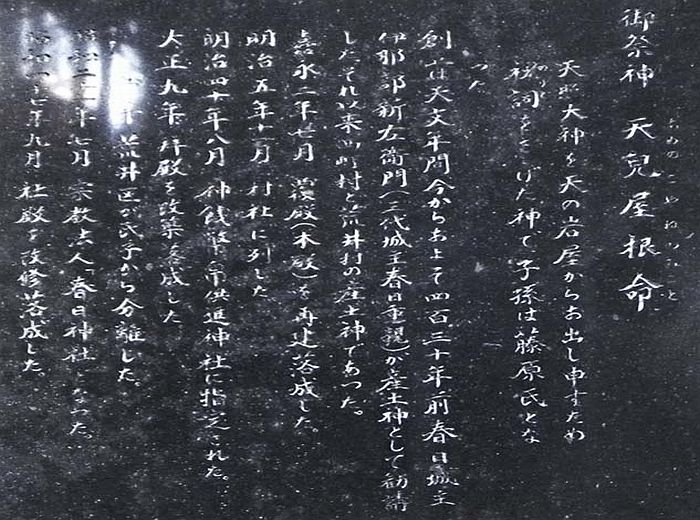 御祭神 天兒屋根命
天照大神を天の岩屋からお出し申すため
祝詞をさゝげた神で子孫は藤原氏とな
った
創立天文年間今からおよそ四百三十年前春日城主
伊那部新左衛門(三代城主春日重親)が産土神として勧請
したそれ以来山町村と荒井村の産土神であつた。
嘉永二年 月 覆殿(本殿)を再建落成した。
明治五年十一月 村社に列した
明治四十年八月 神饌幣帛供進神社に指定された。
大正九年 拝殿を改築落成した
年 荒井区が氏子から分離した。
年七月 宗教法人「春日神社」となつた。
七年九月 社殿を改修落成した。